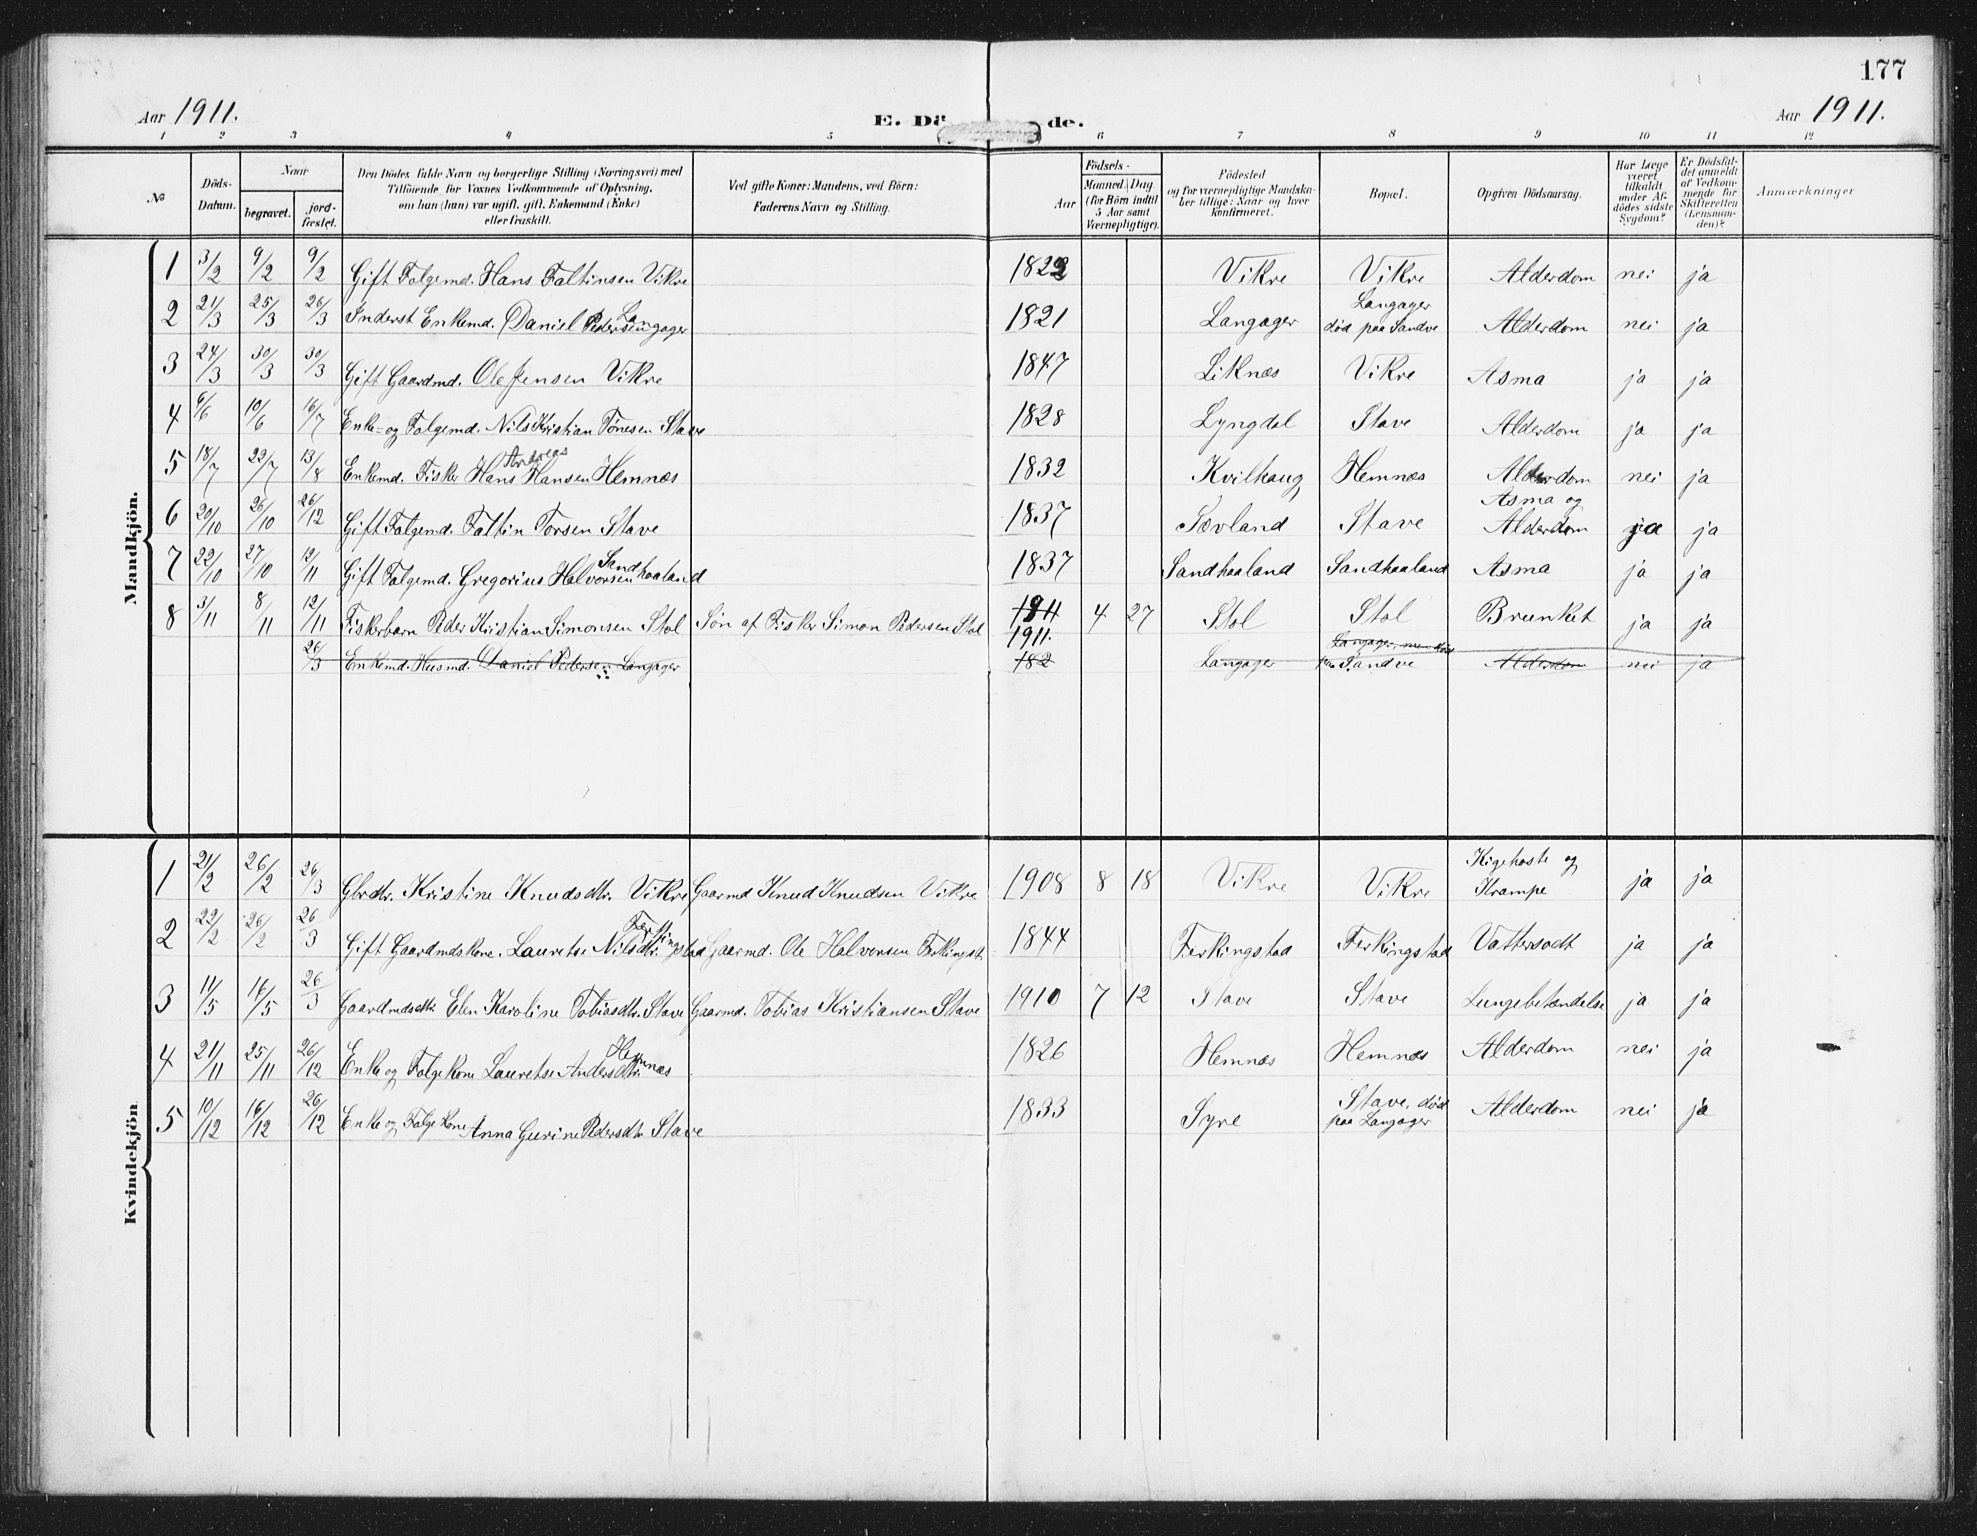 177
Aar 1911.
E. Dö de.
Aar 1911.
1 2 3 4 5 6 7 8 9 10 11 12
No
Döds-Datum.
Naar
begravet.
jord-fæstet.
Den Dödes fulde Navn og borgerlige Stilling (Næringsvei) med
Tilföiende, for Voxnes Vedkommende af Oplysning,
om han (hun) var ugift, gift, Enkemand (Enke)
eller fraskilt.
Ved gifte Koner: Mandens, ved Börn:
Faderens Navn og Stilling.
Födsels-
Aar
Maaned. Dag
(for Börn indtil
5 Aar samt
Værnepligtige).
Födested
og for værnepligtige Mandska-
ber tillige: Naar og hvor
konfirmeret.
Bopæl.
Opgiven Dödsaarsag.
Har Læge
været
tilkaldt
under Af-
dödes sidste
Sygdom?
Er Dödsfal-
det anmeldt
af Vedkom-
mende for
Skifteretten
(Lensman-
den)?
Anmærkninger
Mandkjön.
1 3/2 9/2 9/2 Gift Folgemd. Hans Faltinsen Vikre 1822 Vikre Vikre Alderdom nei ja
2 21/3 25/3 26/3 Inderst Enkemd. Daniel Pedersen Langager 1821 Langager Langager død paa Sandve Alderdom nei ja
3 24/3 30/3 30/3 Gift Gaardmd. Ole Jensen Vikre 1847 Liknæs Vikre Asma ja ja
4 6/6 10/6 16/7 Enke- og Folgemd. Nils Kristian Tønesen Stave 1828 Lyngdal Stave Alderdom ja ja
5 18/7 22/7 13/8 Enkemd. Fisker Hans Andreas Hansen Hemnæs 1832 Kvilhaug Hemnæs Alderdom nei ja
6 20/10 26/10 26/12 Gift Folgemd. Faltin Torsen Stave 1837 Sævland Stave Asma og Alderdom ja ja
7 22/10 27/10 12/11 Gift Folgemd. Gregorius Halvorsen Sandhaaland 1837 Sandhaaland Sandhaaland Asma ja ja
8 3/11 8/11 12/11 Fiskerbarn Peder Kristian Simonsen Stol Søn af Fisker Simon Pedersen Stol 1911. 4 27 Stol Stol Brunket ja ja
26/3 Enkemd. Husmd. Daniel Pedersen Langager 182 Langager Langager, men død paa Sandve Alderdom nei ja
Kvindekjön
1 21/2 26/2 26/3 Gbrdtr. Kristine Knudsdtr. Vikre Gaarmd Knud Knudsen Vikre 1908 8 18 Vikre Vikre Kigehoste og Krampe ja ja
2 22/2 26/2 26/3 Gift Gaardmdskone. Lauretse Nilsdtr. Ferkingstad Gaarmd. Ole Halvorsen Ferkingst 1844 Ferkingstad Ferkingstad Vattersodt ja ja
3 11/5 16/5 26/3 Gaardmdsdtr Elen Karoline Tobiasdtr. Stave Gaarmd. Tobias Kristiansen Stave 1910 7 12 Stave Stave Lungebetændelse ja ja
4 21/11 25/11 26/12 Enke og Folgekone Lauretse Andersdtr. Hemnæs 1826 Hemnæs Hemnæs Alderdom nei ja
5 10/12 16/12 26/12 Enke og Folgekone Anna Gurine Pedersdtr Stave 1833 Syre Stave, død paa Langager Alderdom nei ja